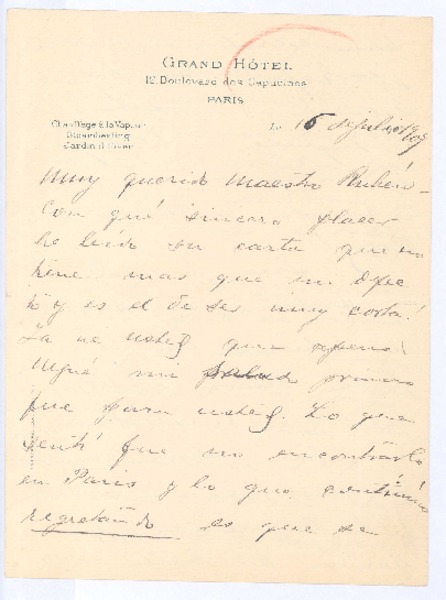 GRAND HÔTEL
12, Boulevard des Capucines
PARIS
Chauffage à la Vapeur
Le 15 de julio 1909
Jardin d'hiver
Muy querido Maestro Rubén -
Con qué sincero placer
he leído su carta que no
tiene mas que un defec
to y es el de ser muy corta!
Ya ve usted que apenas
llegué mi saludo primero
fue para usted. Lo que
sentí fue no encontrarlo
en Paris y lo que continúo
regretando es que se